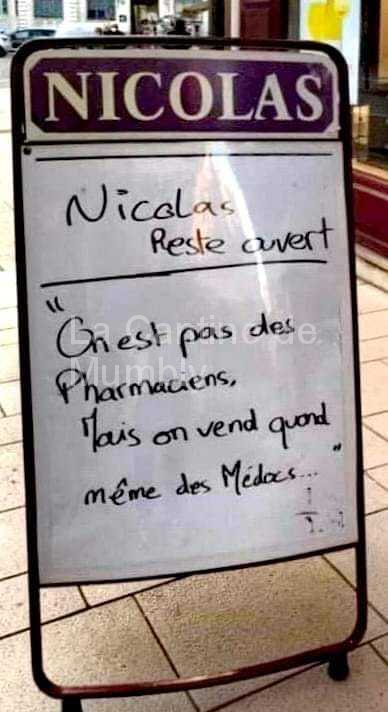 NICOLAS
Nicolas
Reste ouvert
"On est pas des
Pharmaciens,
Mais on vend quand
même des Médocs..."
La Cantine de
Mumbly